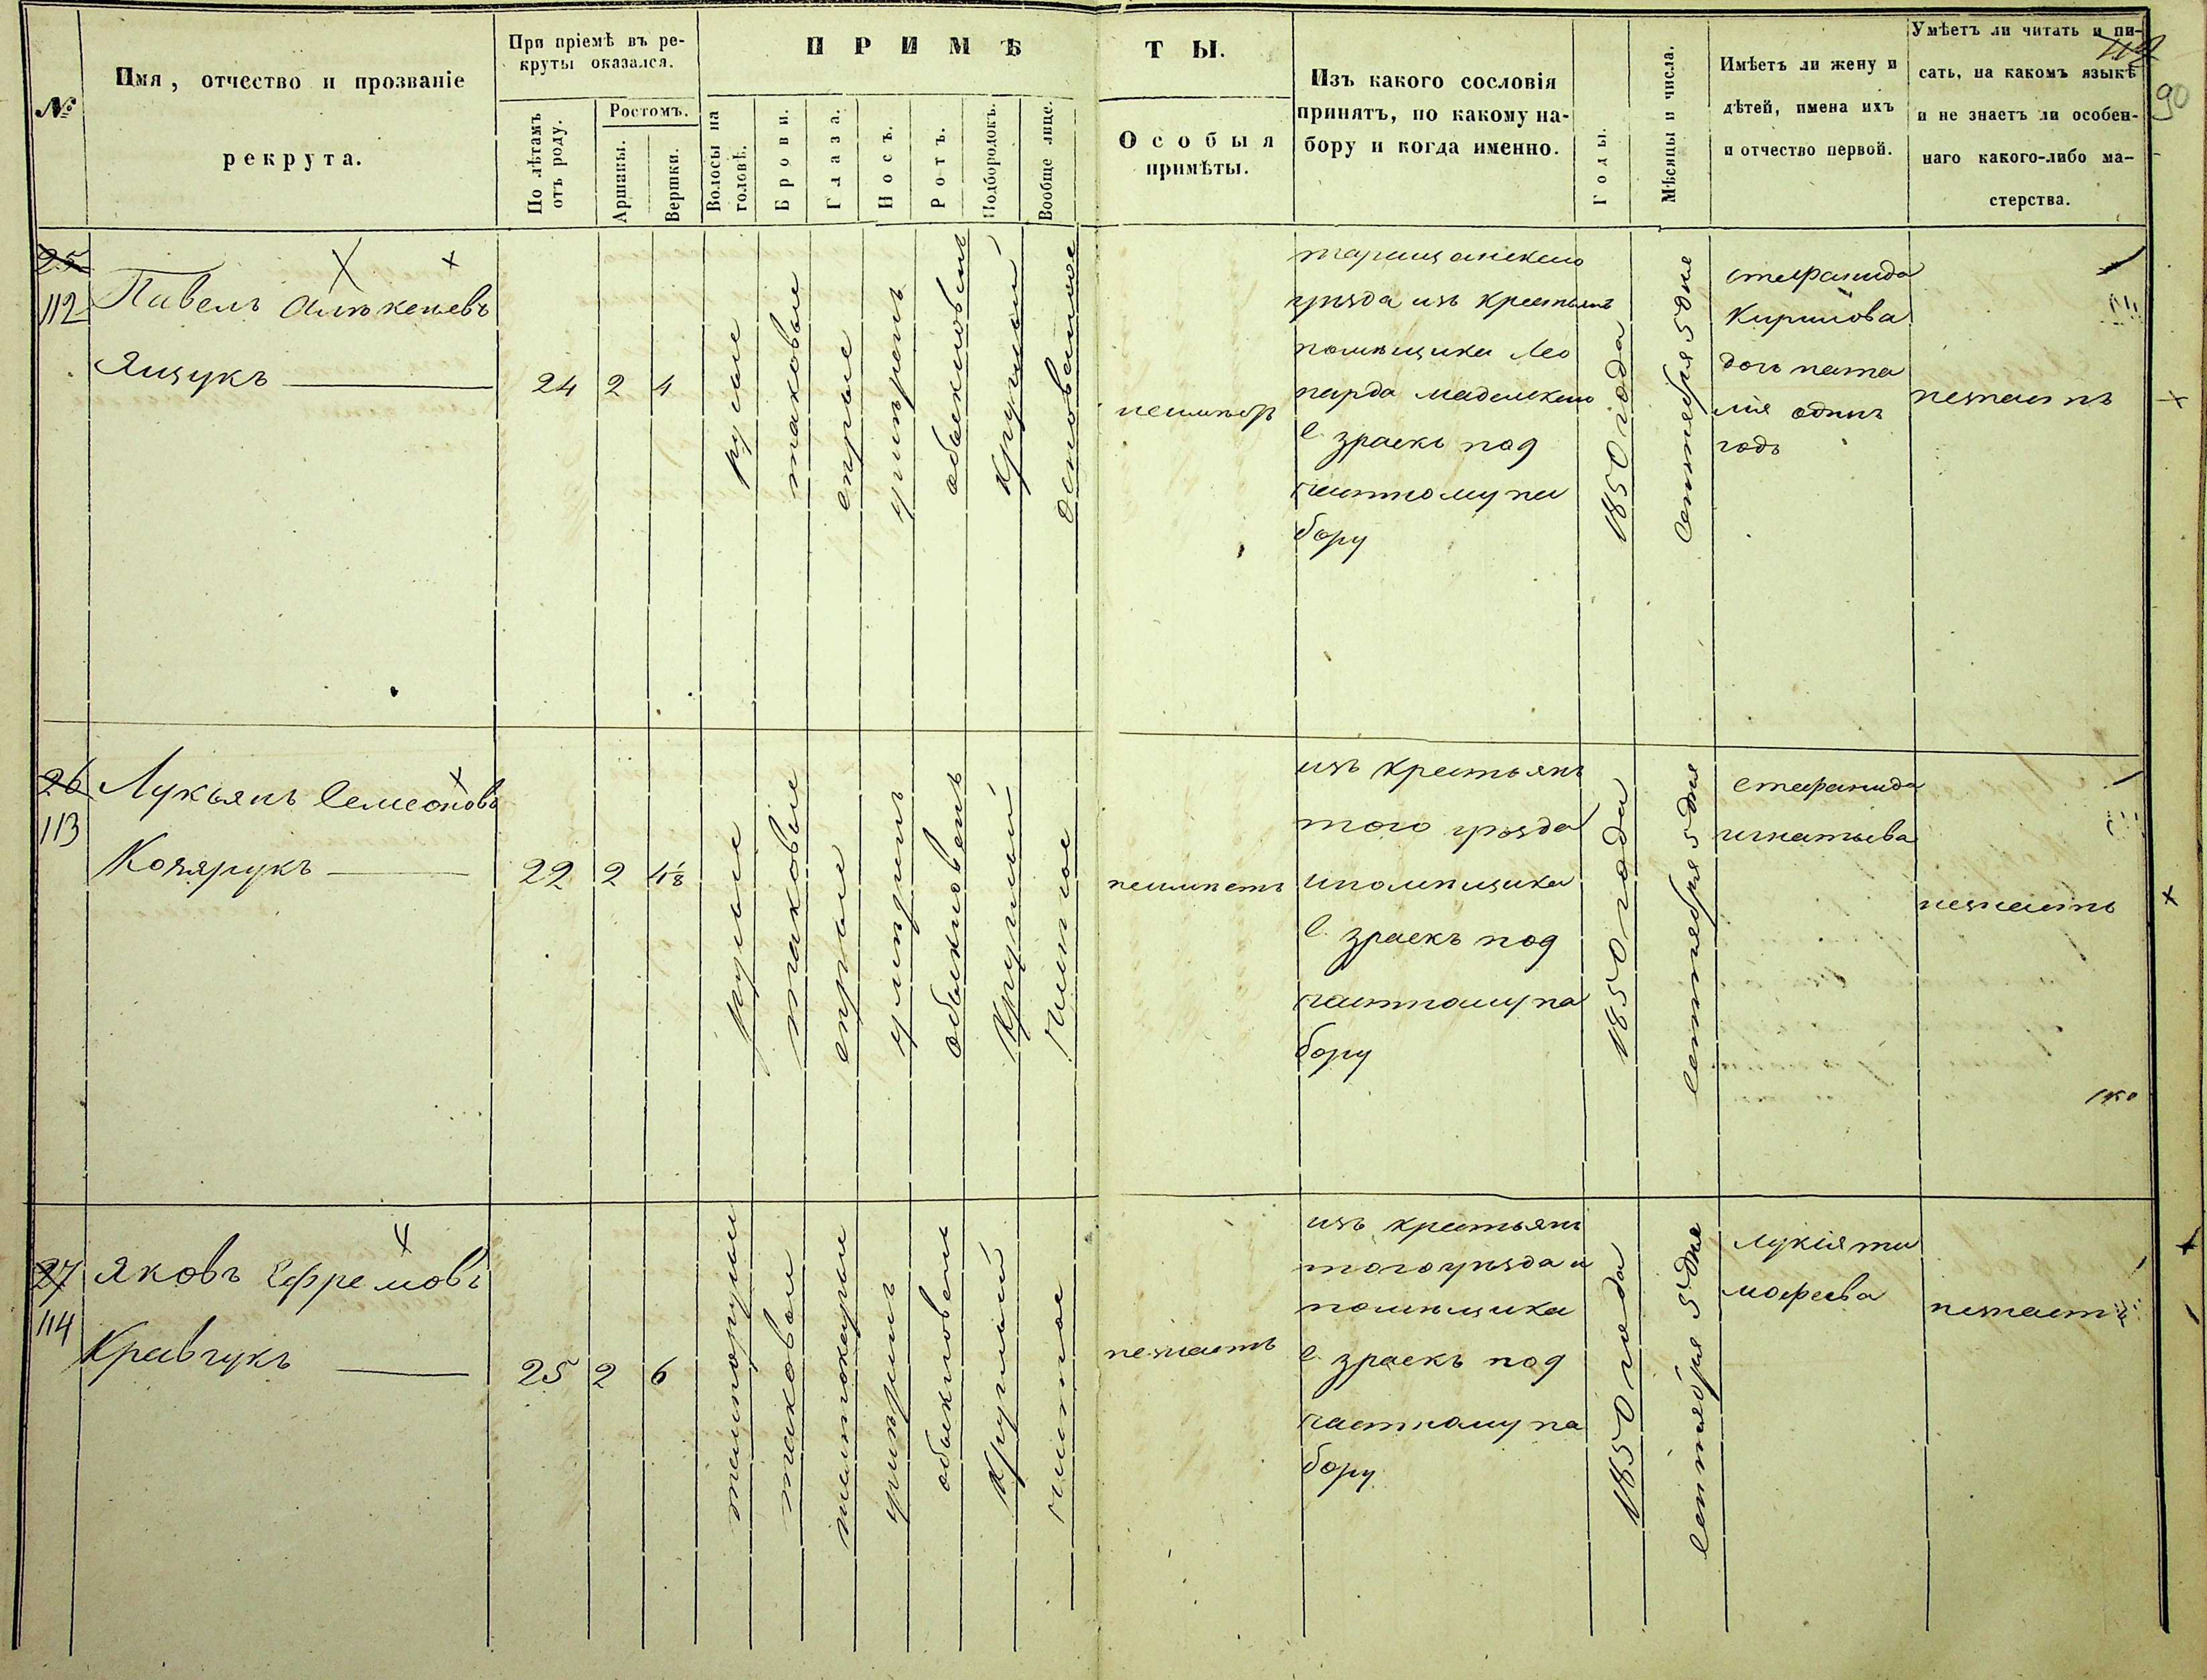 №
Имя, отчество и прозваніе
рекрута.
При пріемѣ въ ре-
круты оказался.
По лѣтамъ
отъ роду.
Ростомъ.
Аршины.
Вершки.
ПРИМѢ
ТЫ.
Волосы на
головѣ.
Брови.
Глаза.
Носъ.
Ротъ.
Подбородокъ.
Вообще лице.
Особыя
примѣты.
Изъ какого сословія
принятъ, по какому на-
бору и когда именно.
Годы.
Мѣсяцы и числа.
Имѣетъ ли жену и
дѣтей, имена ихъ
и отчество первой.
Умѣетъ ли читать и пи-
сать, на какомъ языкѣ
и не знаетъ ли особен-
наго какого-либо ма-
стерства.
90
25
112
Павелъ Алѣксѣевъ
Ящукъ
24
2
4
русые
таковые
сѣрые
умѣренъ
обыкновенъ
круглый
неимѣетъ
таращанского
уѣзда изъ крестьянъ
помѣщика Лео
с. зраекъ под
частному на
бору
1850 года
Сентября 5 дня
стефанида
Кирилова
дочь ната
лія одинъ
годъ
незнаетъ
26
113
Лукьянъ Семеоновъ
22
2
4 1/8
русые
таковые
сѣрые
умѣренъ
обыкновенъ
круглый
чистое
неимѣетъ
изъ крестьянъ
того уѣзда
ипомѣщика
с. зраекъ под
частному на
бору
1850 года
Сентября 5 дня
стефанида
игнатьева
незнаетъ
27
114
Яковъ Ефремовъ
Кравчукъ
25
2
6
темнорусые
таковые
темнокарые
умѣренъ
обыкновенъ
круглый
чистое
незнаетъ
изъ крестьянъ
тогоуѣзда и
помѣщика
с. зраекъ под
частному на
бору
1850 года
Сентября 5 дня
лукія ти
мофеева
незнаетъ